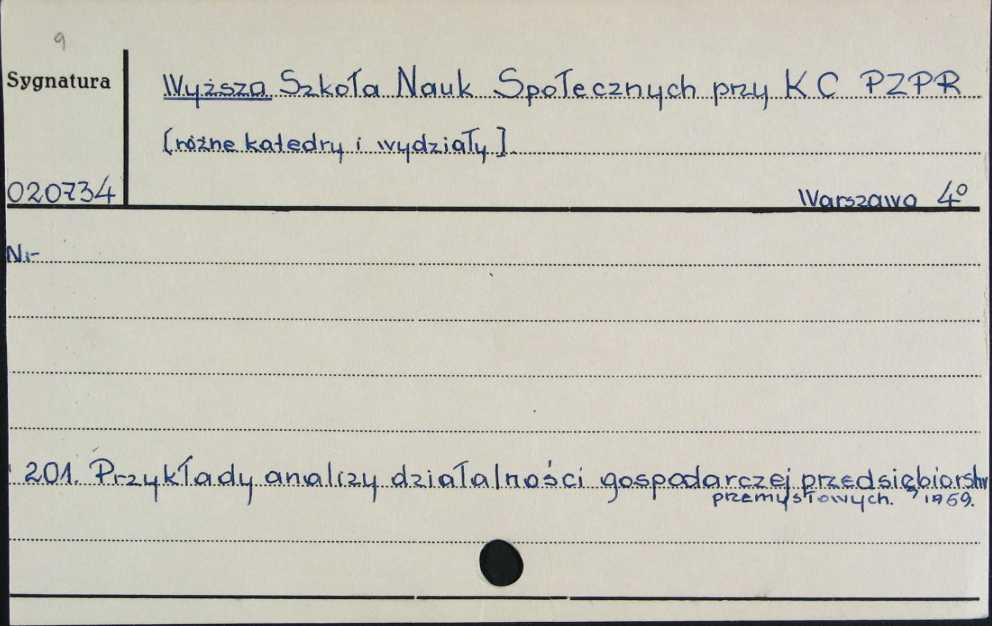 9
Sygnatura
Wyższa Szkoła Nauk Społecznych przy KC PZPR
[różne katedry i wydziały]
020734
Warszawa 4º
Nr
201. Przykłady analizy działalności gospodarczej przedsiębiorstw
przemysłowych. 1969.